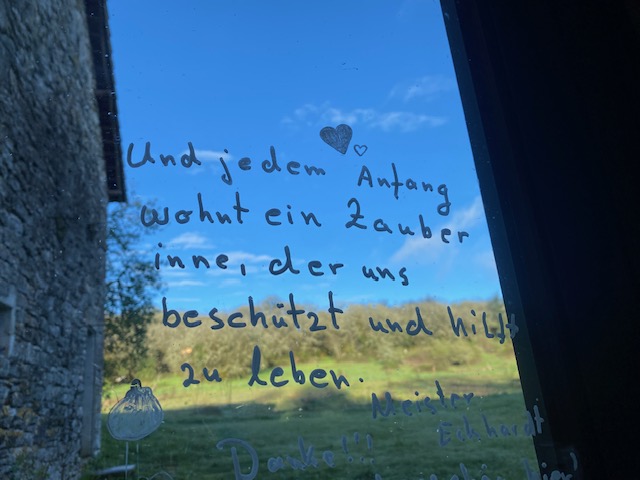 Und jedem Anfang
wohnt ein Zauber
inne, der uns
beschützt und hilft
zu leben.
Meister
Eckhardt
Danke!!!
hier